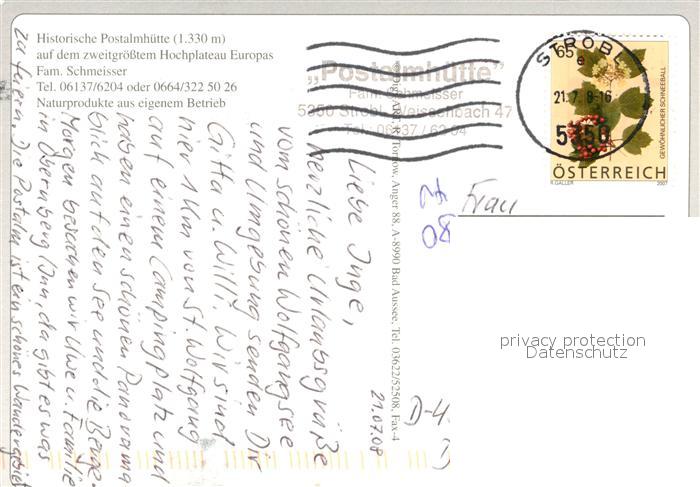 Historische Postalmhütte (1.330 m)
auf dem zweitgrößtem Hochplateau Europas
Fam. Schmeisser
Tel. 06137/6204 oder 0664/322 50 26
Naturprodukte aus eigenem Betrieb
„Postalmhütte"
Fam. Schmeisser
5350 Strobl, Weissenbach 47
Tel.: 06137 / 62 04
STROBL
21.7. 8-16
5350
65
GEWÖHNLICHER SCHNEEBALL
ÖSTERREICH
R. GALLER 2007
Tornow, Anger 88, A-8990 Bad Aussee, Tel. 03622/52508, Fax-4
21.07.08
Liebe Inge,
herzliche Urlaubsgrüße
vom schönen Wolfgangsee
und Umgebung senden Dir
Gitta u. Willi. Wir sind
hier 1 km von St. Wolfgang
auf einem Campingplatz und
haben einen schönen Panorama
blick auf den See und die Berge.
Morgen besuchen wir Uwe u. Familie
in Obernberg/Inn, da gibt es was
zu feiern. Die Postalm ist ein schönes Wandergebiet
80
Frau
D-4
privacy protection
Datenschutz